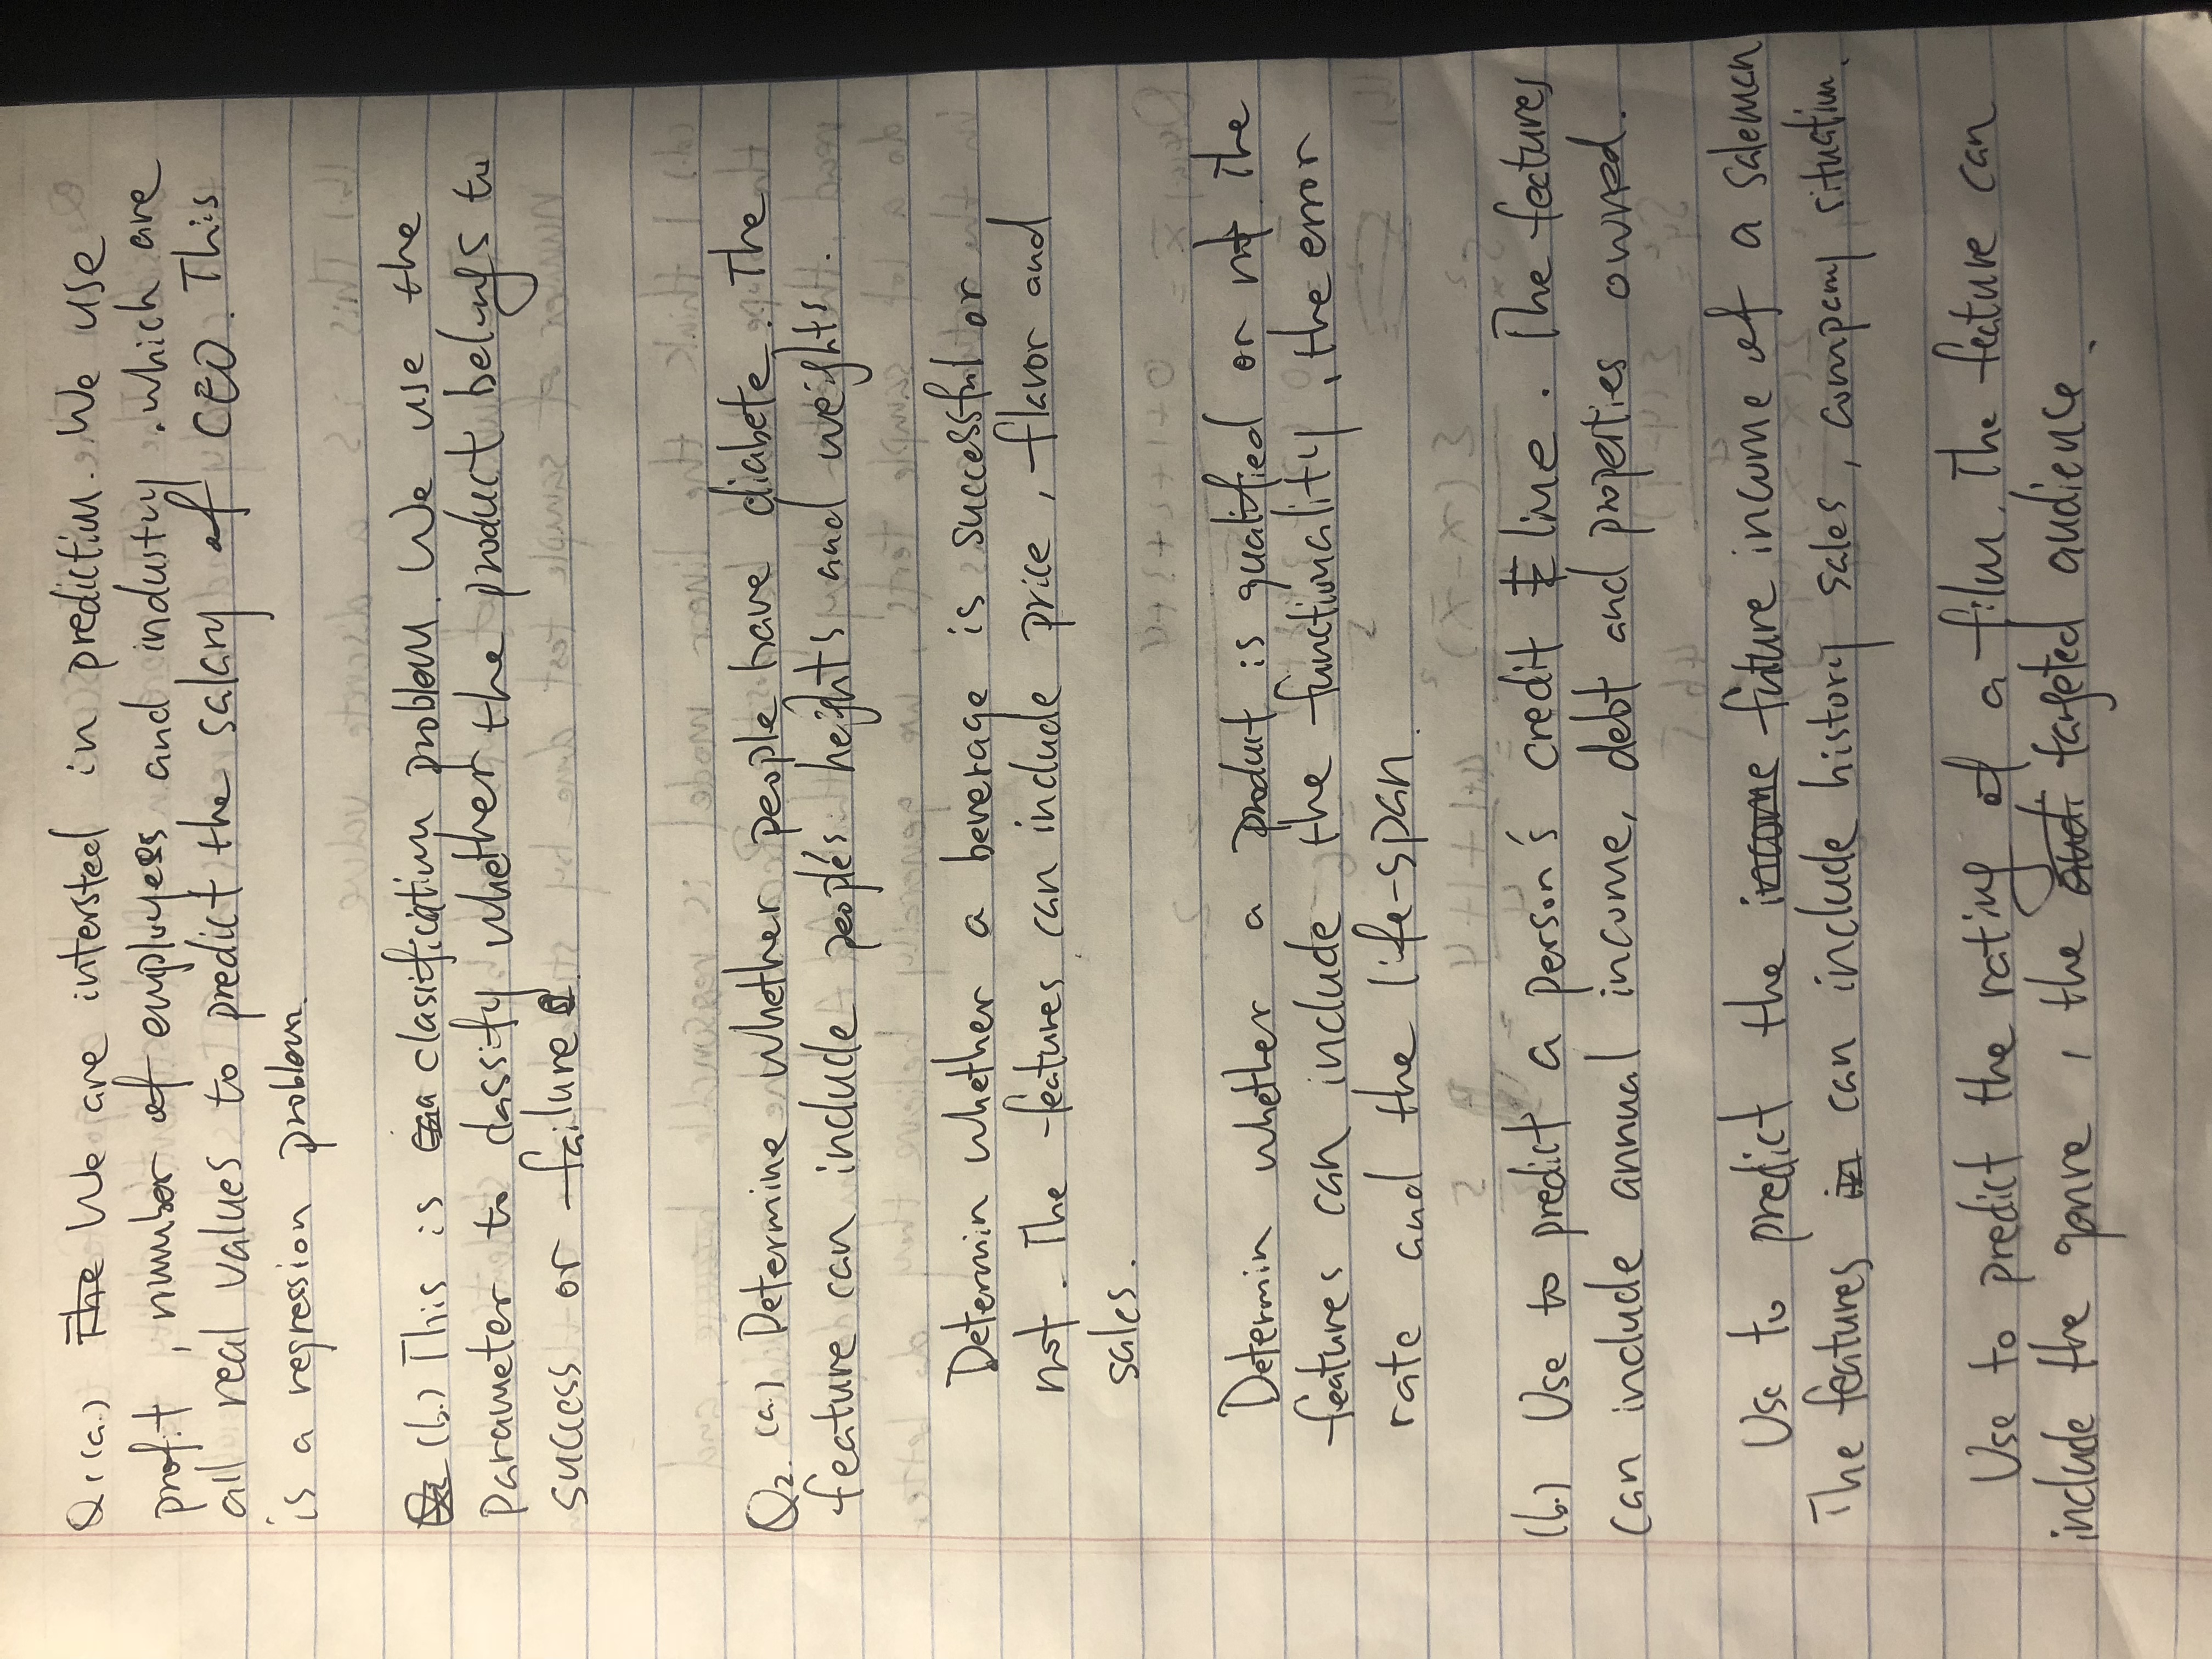 Q1(a.) The We are intersted in prediction. We use
profit, number of employees and industry, which are
all real values to predict the salary of CEO. This
is a regression problem.
(b.) This is a clasification problem. We use the
Parameter to classify whether the product belongs to
success or failure.
Q2. (a.) Determine whether people have diabete. The
feature can include people's heights and weights.
Determin whether a beverage is successful or
not. The features can include price, flavor and
sales.
Determin whether a product is qualified or not The
features can include the functionality, the error
rate and the life-span.
(b.) Use to predict a person's credit line. The features
can include annual income, debt and properties owned.
Use to predict the income future income of a saleman
The features in can include history sales, company situation.
Use to predict the rating of a film. The feature can
include the genre, the audi targeted audience.